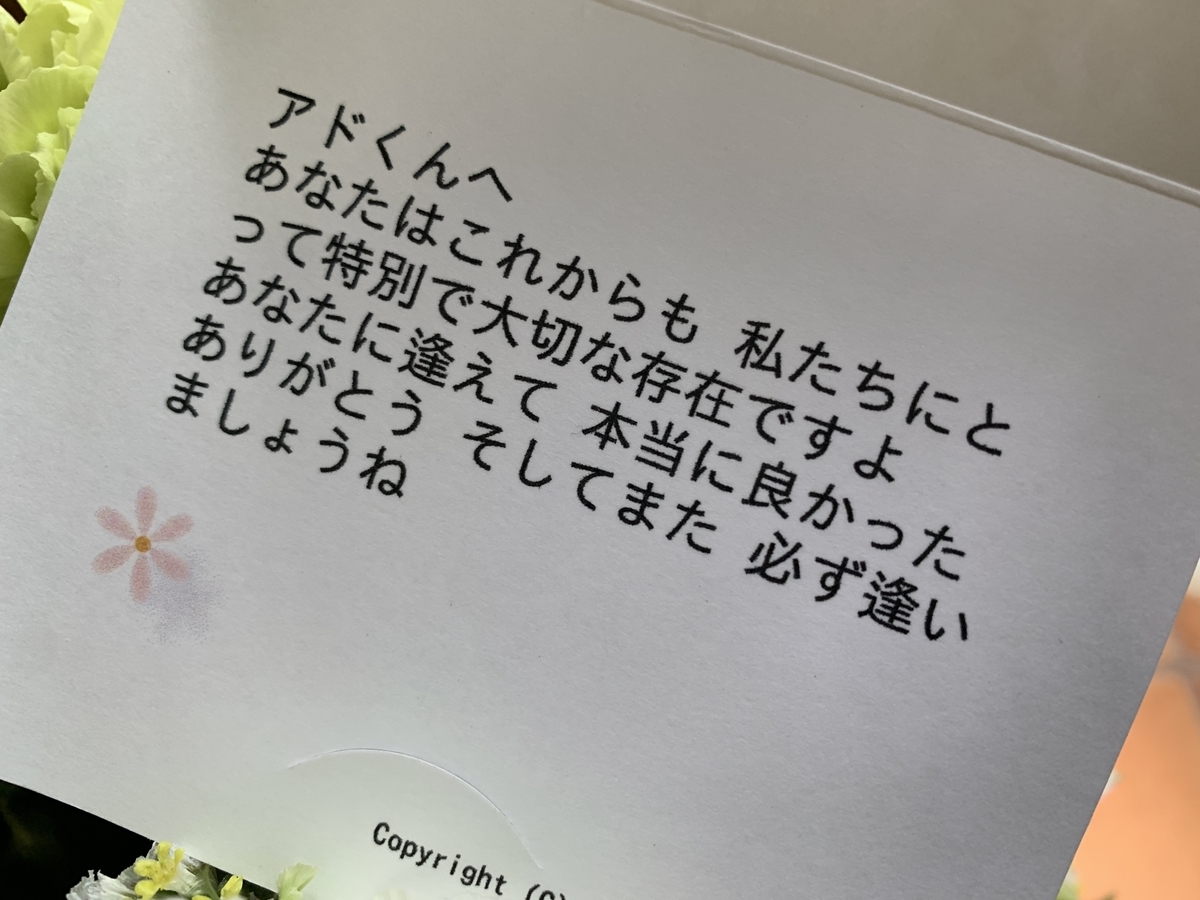 アドくんへ
あなたはこれからも 私たちにと
って特別で大切な存在ですよ
あなたに逢えて 本当に良かった
ありがとう そしてまた 必ず逢い
ましょうね
Copyright (C)